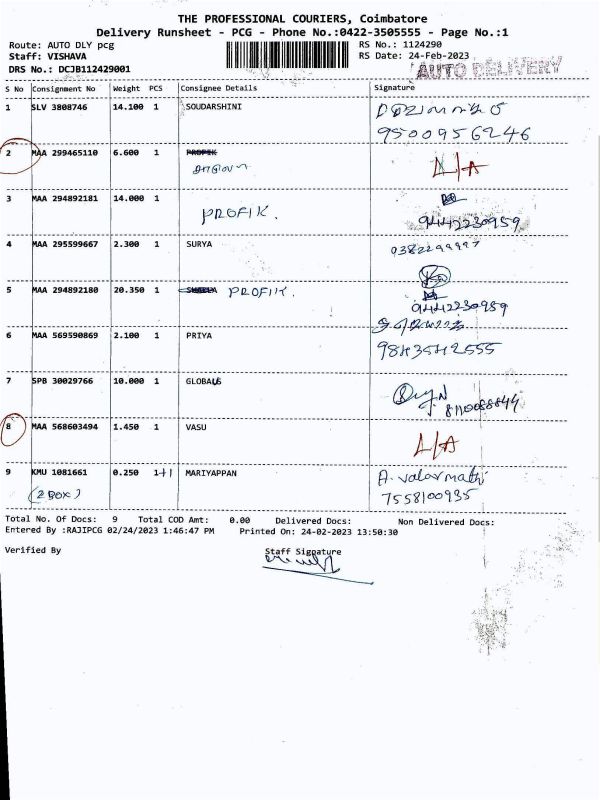 THE PROFESSIONAL COURIERS, Coimbatore
Delivery Runsheet - PCG - Phone No.:0422-3505555 - Page No.:1
Route: AUTO DLY pcg
RS No.: 1124290
Staff: VISHAVA
RS Date: 24-Feb-2023
DRS No.: DCJB112429001
AUTO DELIVERY
S No Consignment No Weight PCS Consignee Details Signature
1 SLV 3808746 14.100 1 SOUDARSHINI
9500956246
2 MAA 299465110 6.600 1 L/A
3 MAA 294892181 14.000 1
PROFIK. 9442230959
4 MAA 295599667 2.300 1 SURYA
5 MAA 294892180 20.350 1 PROFIK.
9442230959
6 MAA 569590869 2.100 1 PRIYA
9843542555
7 SPB 30029766 10.000 1 GLOBALS
8 MAA 568603494 1.450 1 VASU
L/A
9 KMU 1081661 0.250 1+1 MARIYAPPAN A. valarmathi
(2 BOX) 7558100935
Total No. Of Docs: 9 Total COD Amt: 0.00 Delivered Docs: Non Delivered Docs:
Entered By :RAJIPCG 02/24/2023 1:46:47 PM Printed On: 24-02-2023 13:50:30
Verified By Staff Signature